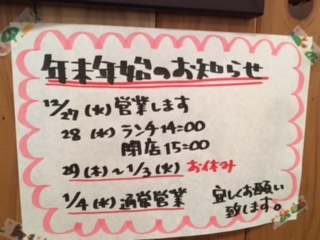 年末年始のお知らせ
12/27(火)営業します
28(水)ランチ14:00
閉店15:00
29(木)~1/3(火)お休み
1/4(水)通常営業
宜しくお願い
致します。